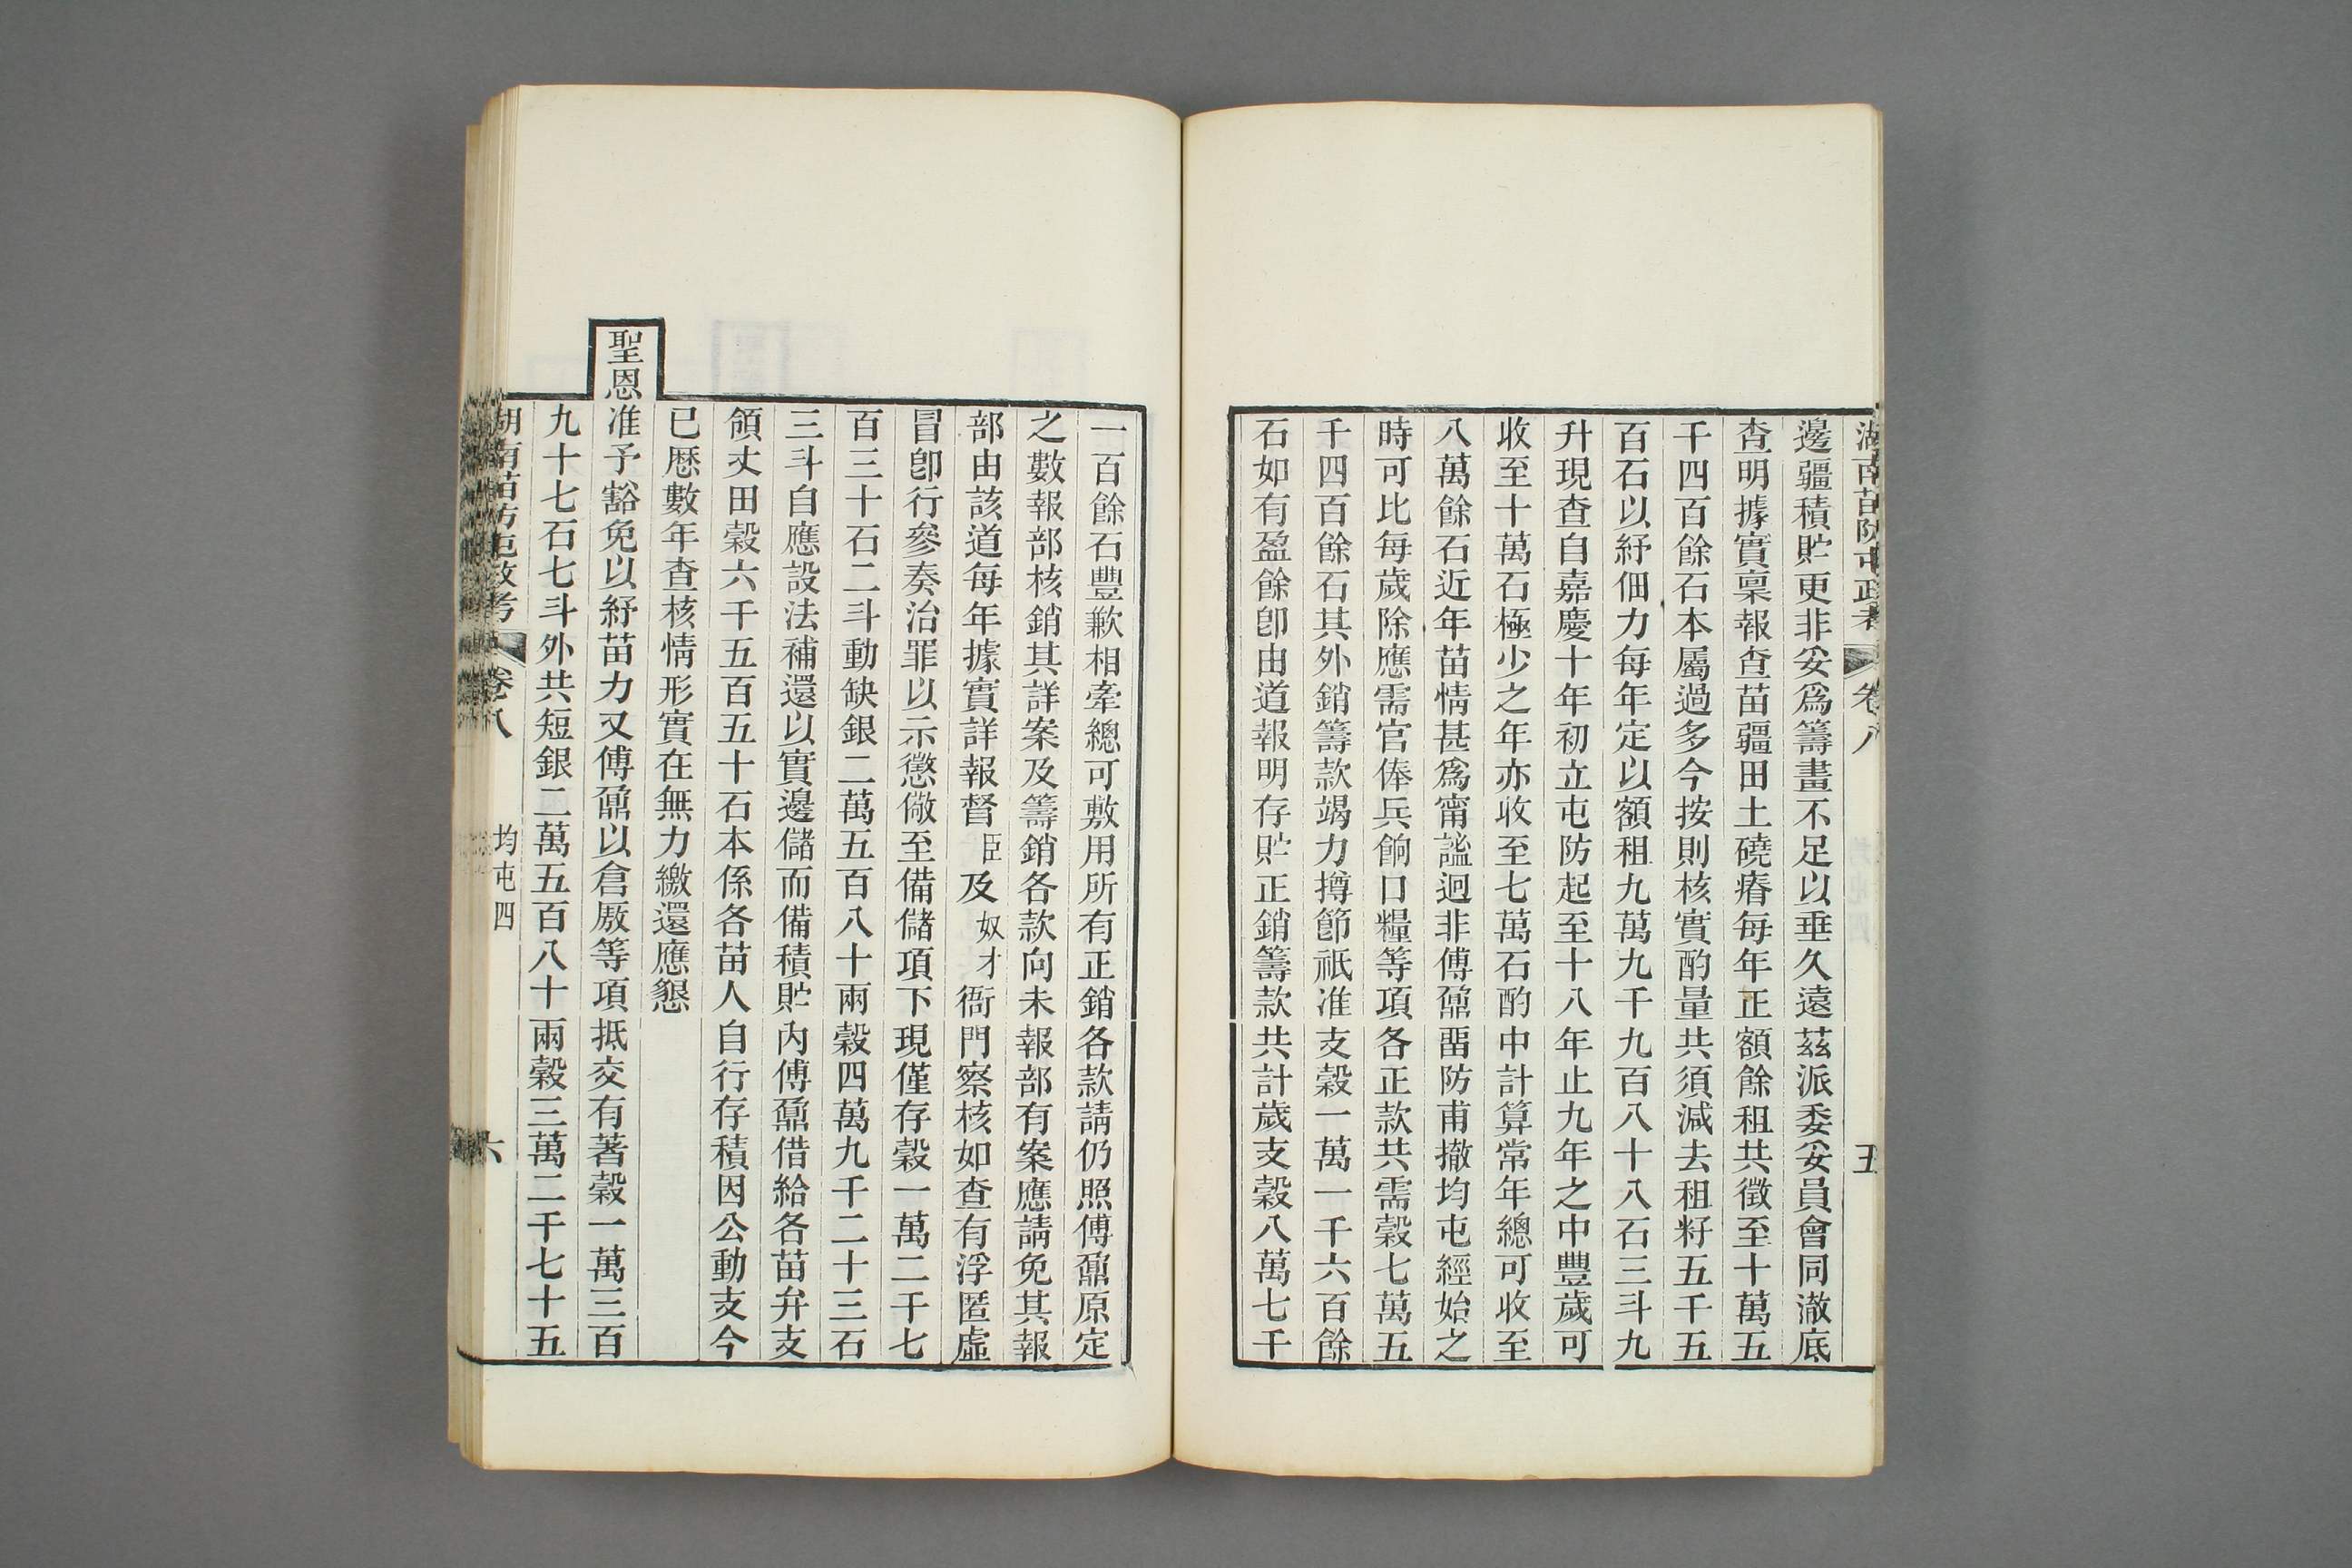 湖南苗防屯政考 卷八 五
邊疆積貯更非妥爲籌畫不足以垂久遠茲派委妥員會同澈底
查明據實稟報查苗疆田土磽瘠每年正額餘租共徵至十萬五
千四百餘石本屬過多今按則核實酌量共須減去租籽五千五
百石以紓佃力每年定以額租九萬九千九百八十八石三斗九
升現查自嘉慶十年初立屯防起至十八年止九年之中豐歲可
收至十萬石極少之年亦收至七萬石酌中計算常年總可收至
八萬餘石近年苗情甚爲甯謐迥非傅鼐畱防甫撤均屯經始之
時可比每歲除應需官俸兵餉口糧等項各正款共需穀七萬五
千四百餘石其外銷籌款竭力撙節祇准支穀一萬一千六百餘
石如有盈餘卽由道報明存貯正銷籌款共計歲支穀八萬七千
一百餘石豐歉相牽總可敷用所有正銷各款請仍照傅鼐原定
之數報部核銷其詳案及籌銷各款向未報部有案應請免其報
部由該道每年據實詳報督臣及奴才衙門察核如查有浮匿虛
冒卽行參奏治罪以示懲儆至備儲項下現僅存穀一萬二千七
百三十石二斗動缺銀二萬五百八十兩穀四萬九千二十三石
三斗自應設法補還以實邊儲而備積貯內傅鼐借給各苗弁支
領丈田穀六千五百五十石本係各苗人自行存積因公動支今
已歷數年查核情形實在無力繳還應懇
聖恩准予豁免以紓苗力又傅鼐以倉厫等項抵交有著穀一萬三百
九十七石七斗外共短銀二萬五百八十兩穀三萬二千七十五
湖南苗防屯政考 卷八 均屯四 六